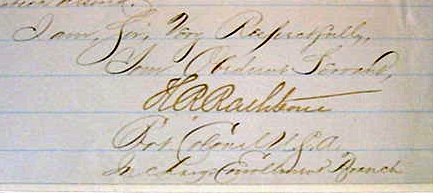 I am, Sir, Very Respectfully,
Your Obedient Servant,
H R Rathbone
Bvt Colonel U.S.A.
In charge Enrollment Branch